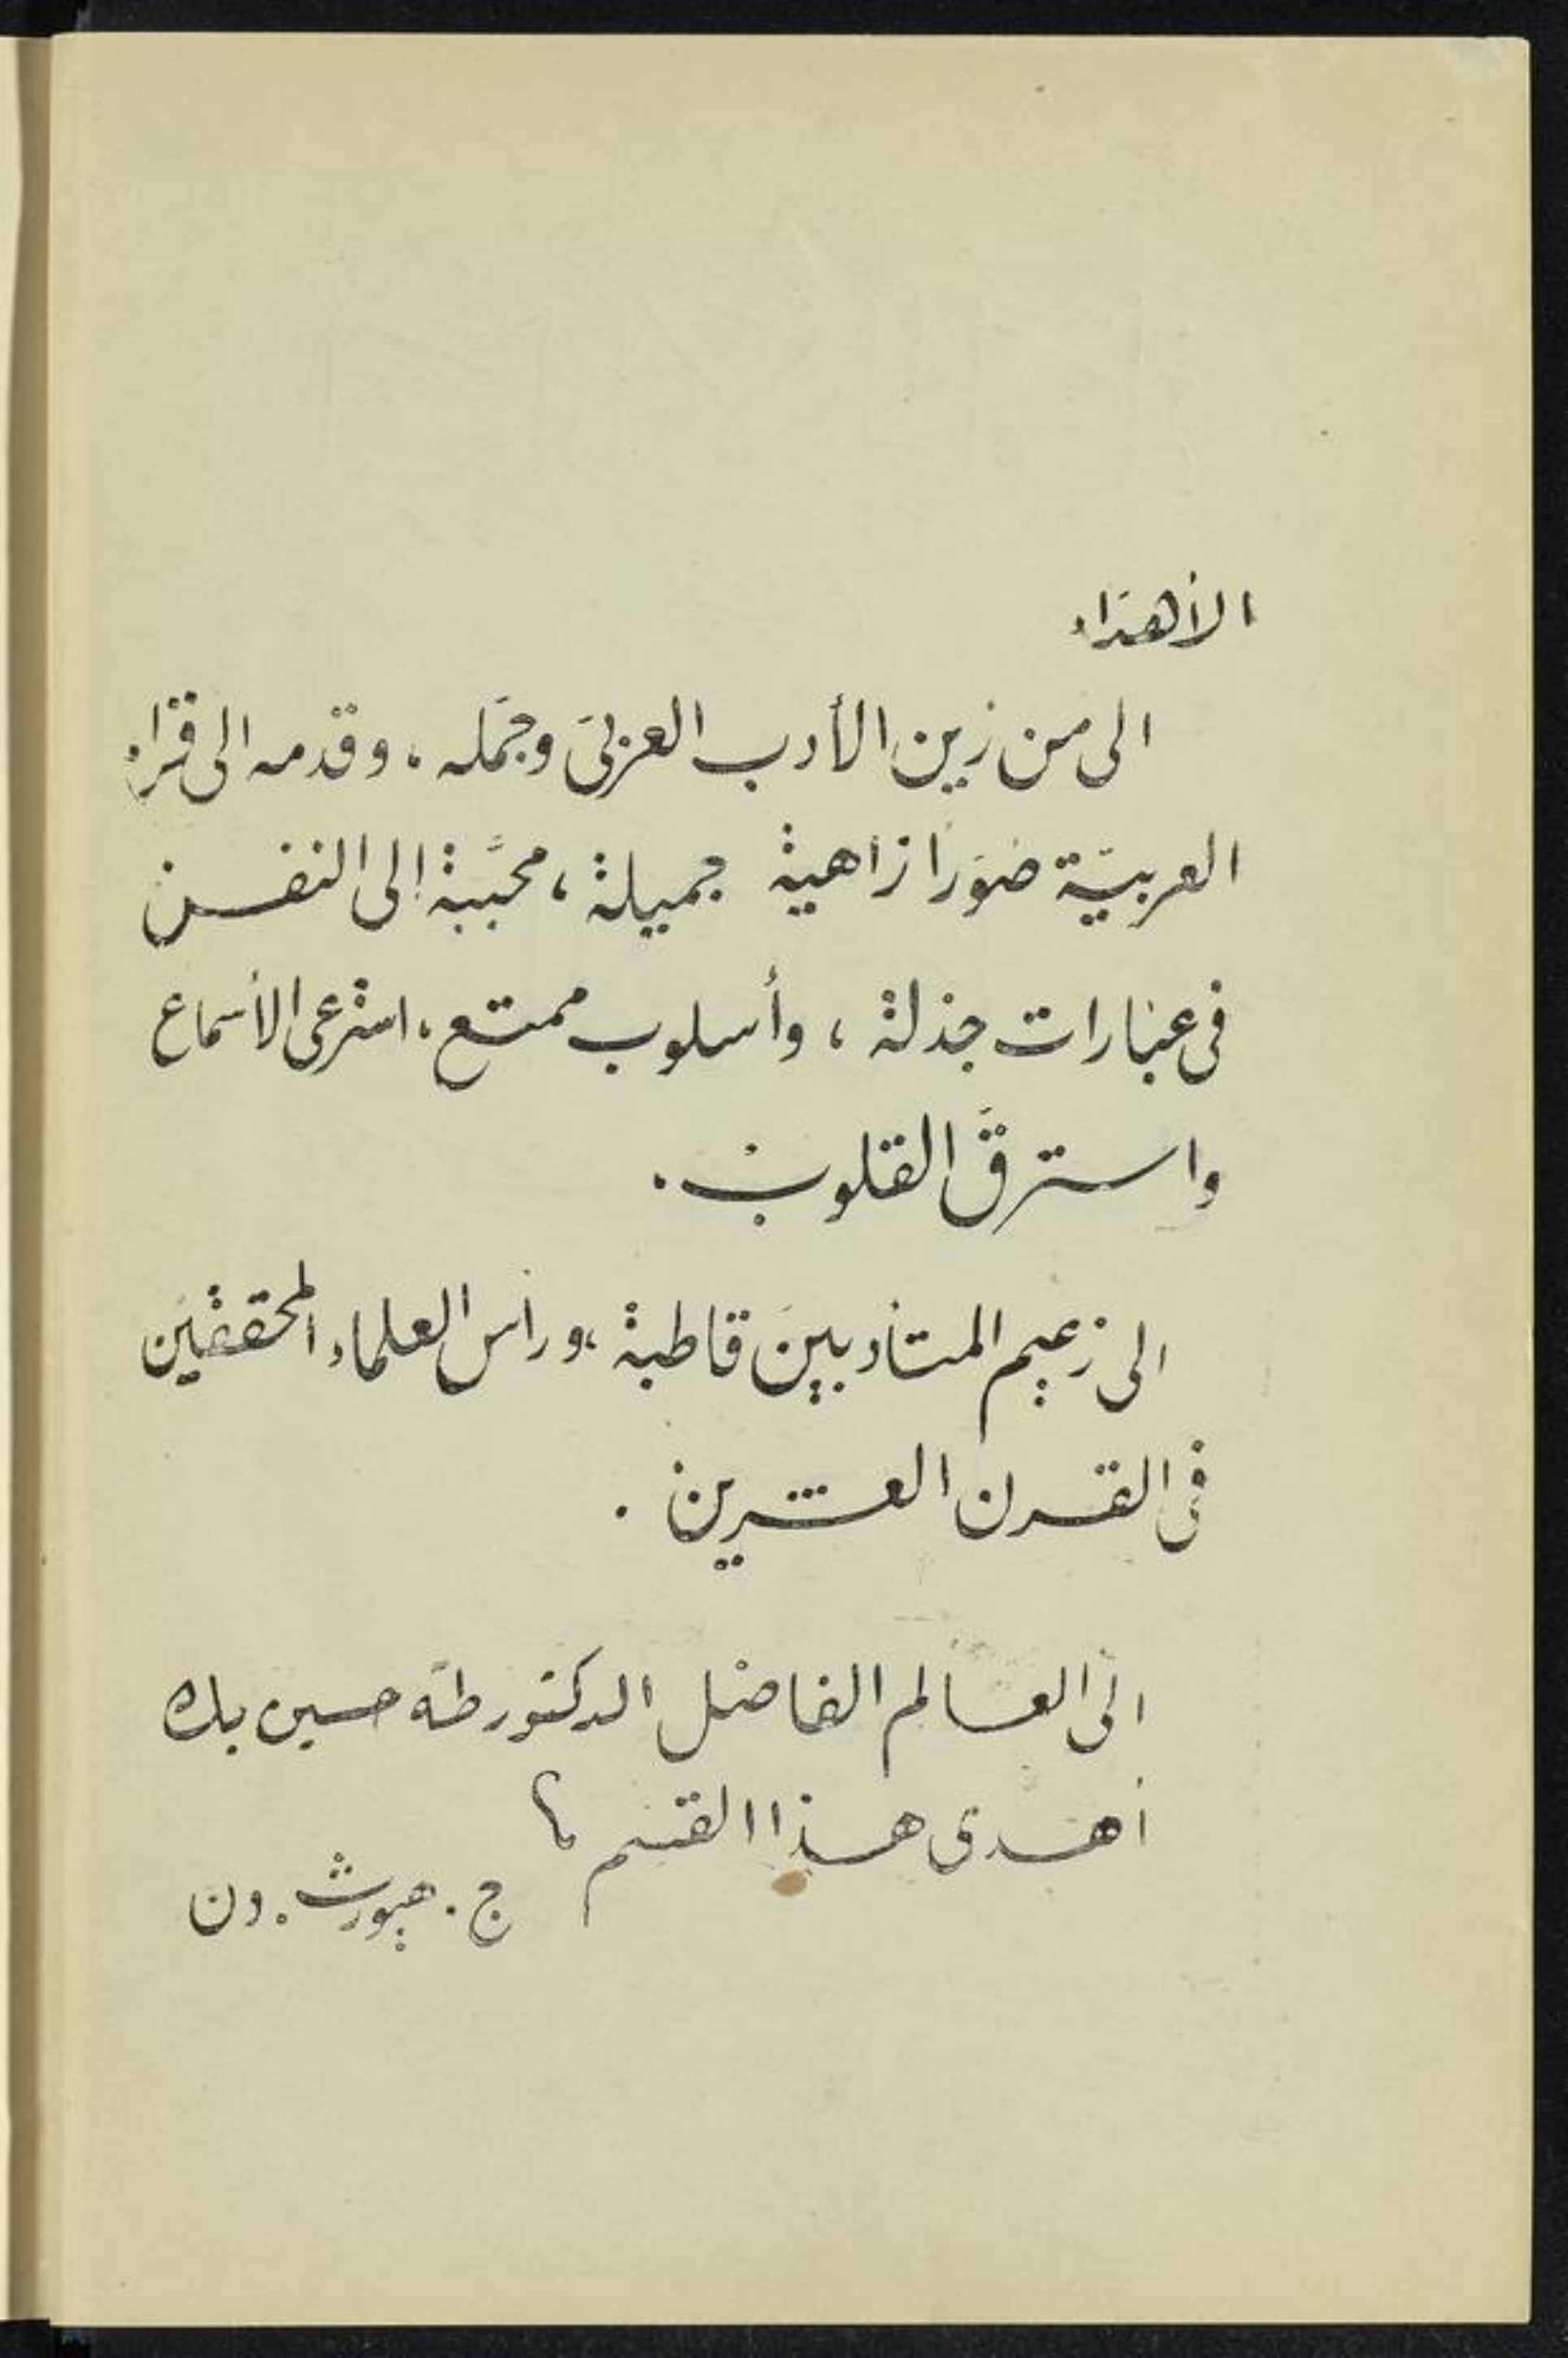 الأهداء
الى من زين الأدب العربى وجمّله ، وقدمه الى قرّاء
العربيّة صورا زاهية جميلة ، محبَّبة إلى النفس
فى عبارات جذلة ، وأسلوب ممتع ، استرعى الأسماع
واسترقَّ القلوب .
الى زعيم المتأدبين قاطبة ، ورأس العلماء المحققين
فى القرن العشرين .
الى العالم الفاضل الدكتور طه حسين بك
أهدى هذا القسم
ج . هيورث . دن